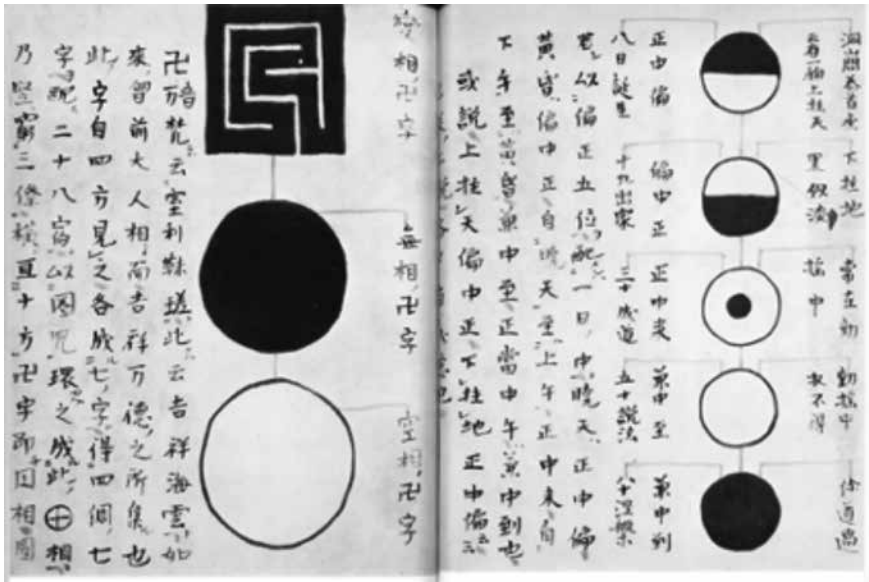 上挂天 下挂地 常在動
黑似漆
正中偏 偏中正 正中来 兼中至 兼中到
八日誕生 十九出家 三十成道 五十説法 八十涅槃
以偏正五位配一日中曉天正中偏
黄昏偏中正自曉天至上午正中来自
下午至黄昏兼中至正當中午兼中到也
或説上挂天偏中正下挂地正中偏
變相卍字 無相卍字 空相卍字
卍 梵云室利靺瑳此云吉祥海雲如
來胷前大人相而吉祥万德之所集也
此字自四方見之各成七字得四個七
字説二十八宿以圓 環之成此⊕相
乃竪窮三際横亘十方卍字即円相圓